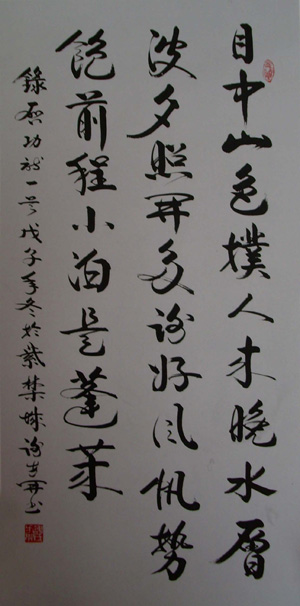 目中山色撲人來晚水層
波夕照開多謝好風帆勢
飽前程小泊是蓬萊
錄啓功詩一首戊子年冬於紫禁城謝開書